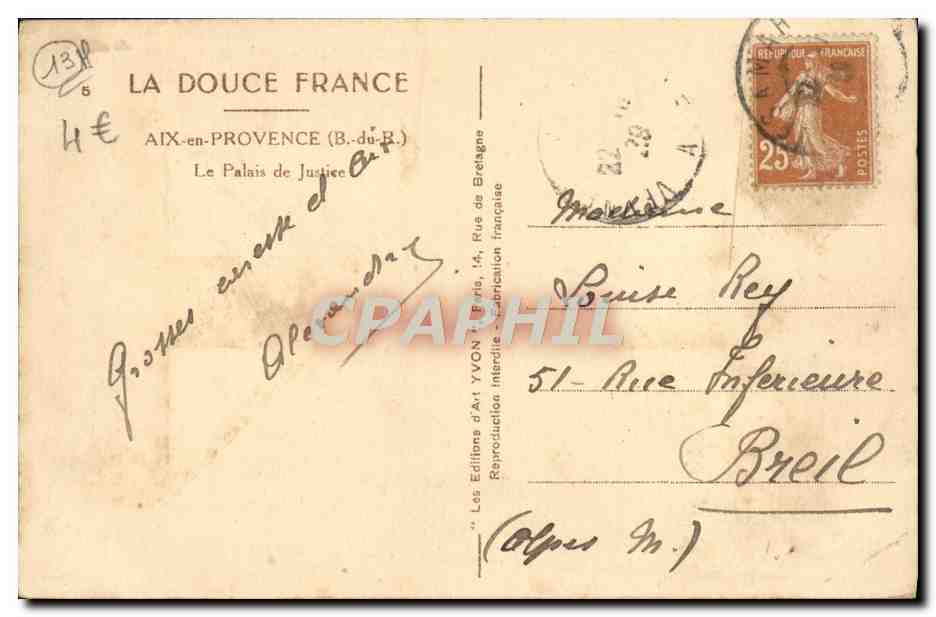 13
5
4€
LA DOUCE FRANCE
AIX-en-PROVENCE (B.-du-R.)
Le Palais de Justice
Grosses
Alexandra
" Les Editions d'Art YVON ", Paris, 14, Rue de Bretagne
Reproduction Interdite - Fabrication française
REPUBLIQUE FRANÇAISE
25
POSTES
22
28
A
Madame
Louise Rey
51 - Rue Inferieure
Breil
(Alpes M.)
CPAPHIL